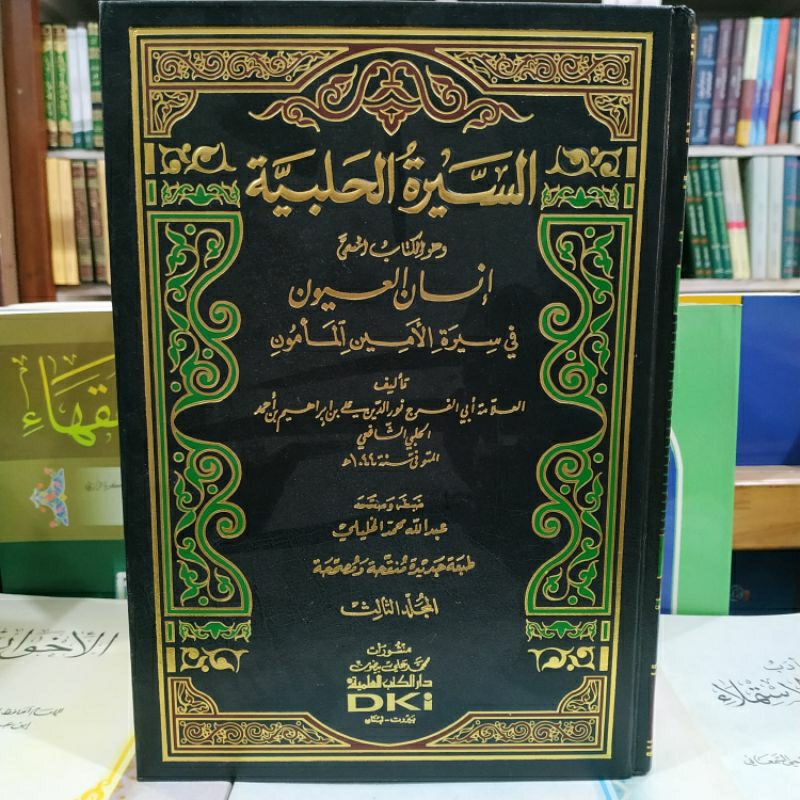 السيرة الحلبية
وهو الكتاب المسمى
إنسان العيون
في سيرة الأمين المأمون
تأليف
العلامة أبي الفرج نور الدين علي بن إبراهيم بن أحمد
الحلبي الشافعي
المتوفى سنة ١٠٤٤ه
ضبطه وصححه
عبد الله محمد الخليلي
طبعة جديدة منقحة ومصححة
المجلد الثالث
منشورات
محمد علي بيضون
دار الكتب العلمية
DKi
بيروت - لبنان